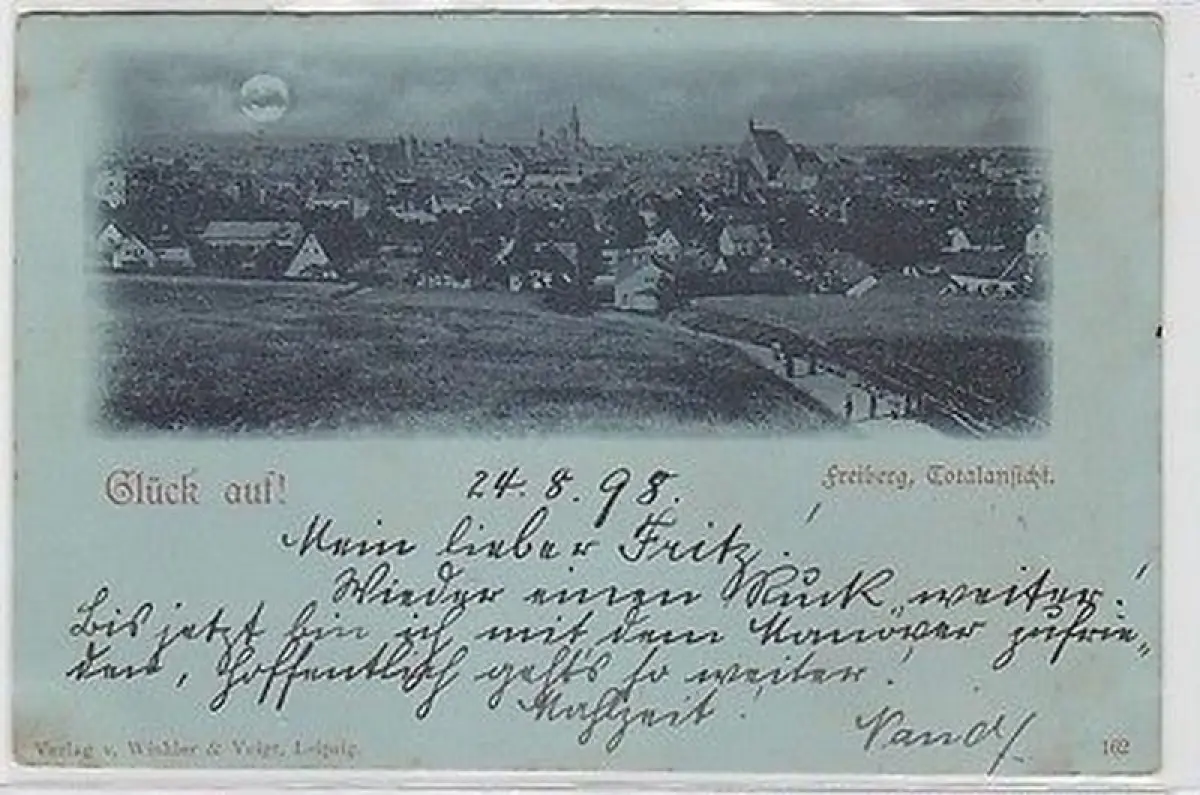 Glück auf!
24. 8. 98.
Freiberg, Totalansicht.
Mein lieber Fritz!
Wieder einen Ruck weiter!
Bis jetzt bin ich mit dem Manöver zufrie-
den, hoffentlich gehts so weiter!
Mahlzeit!
Verlag v. Winkler & Voigt, Leipzig.
162